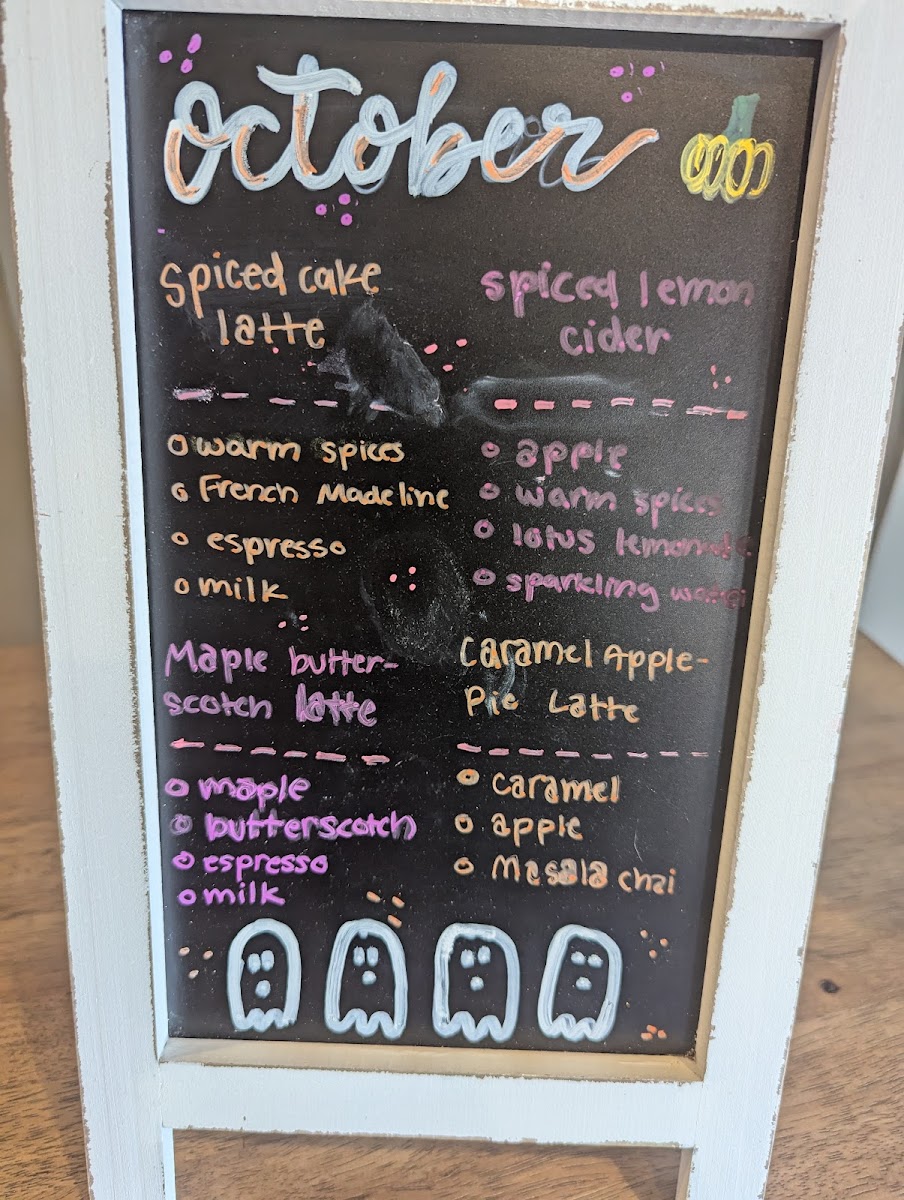 october
Spiced cake
latte
warm spices
French Madeline
espresso
milk
spiced lemon
cider
apple
warm spices
lotus lemonade
sparkling water
Maple butter-
scotch latte
maple
butterscotch
espresso
milk
Caramel Apple-
Pie Latte
caramel
apple
Masala chai